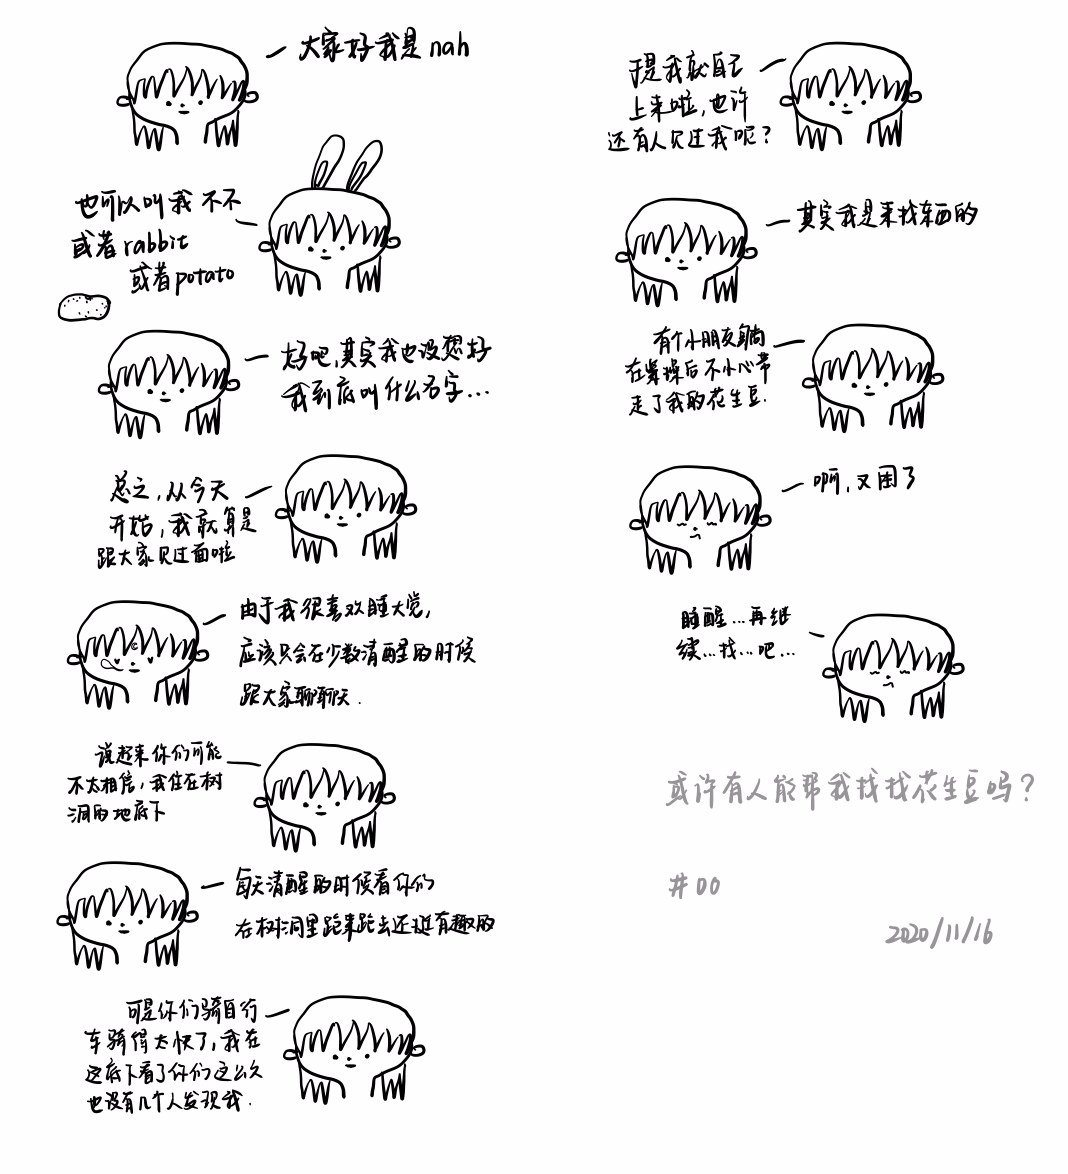 大家好我是nah
也可以叫我 不不
或者rabbit
或者potato
好吧,其实我也没想好
我到底叫什么名字...
总之,从今天
开始,我就算是
跟大家见过面啦
由于我很喜欢睡大觉,
应该只会在少数清醒的时候
跟大家聊聊天.
说起来你们可能
不太相信,我住在树
洞的地底下
每天清醒的时候看你们
在树洞里跑来跑去还挺有趣的
可是你们骑自行
车骑得太快了,我在
这底下看了你们这么久
也没有几个人发现我.
于是我就自己
上来啦,也许
还有人见过我呢?
其实我是来找东西的
有个小朋友躺
在紫操后不小心带
走了我的花生豆.
啊,又困了
睡醒...再继
续...找...吧...
或许有人能帮我找找花生豆吗?
#00
2020/11/16